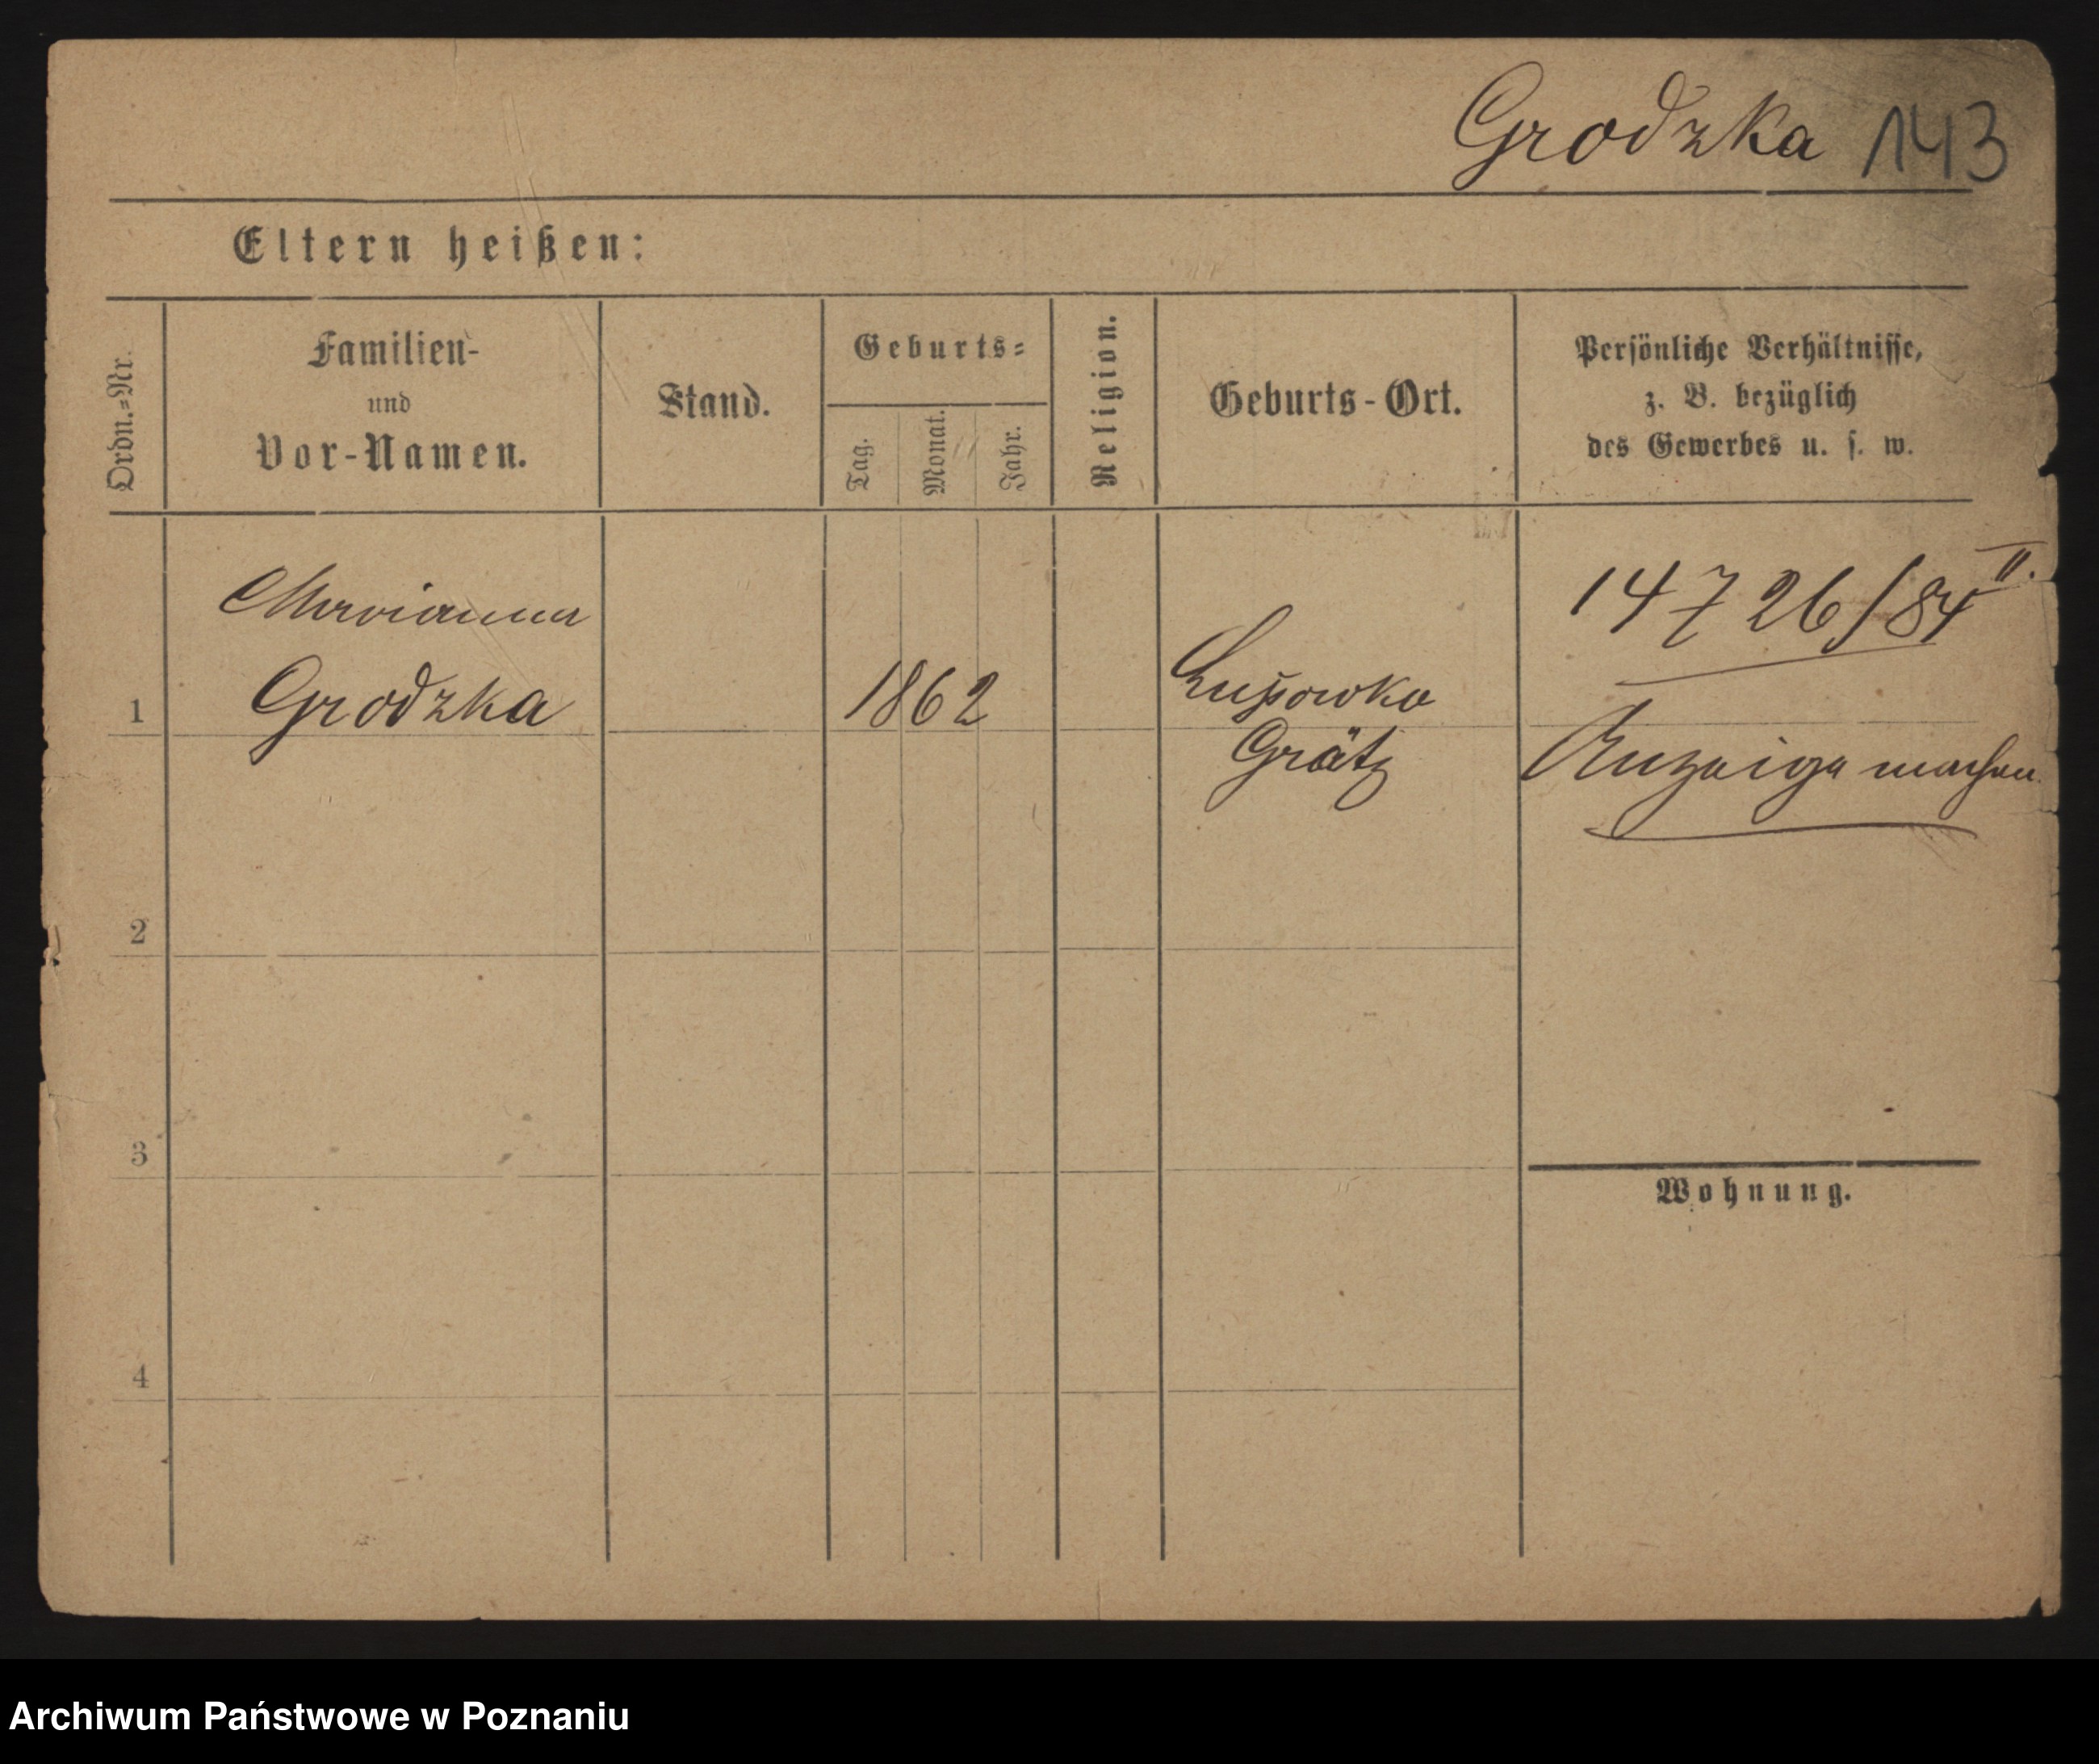 Grodzka 143
Eltern heißen:
Ordn.=Nr.
Familien-
und
Vor-Namen.
Stand.
Geburts=
Tag.
Monat.
Jahr.
Religion.
Geburts-Ort.
Persönliche Verhältnisse,
z. B. bezüglich
des Gewerbes u. s. w.
1
Marianna
Grodzka
1862
Grätz
14726/84 II.
Anzeige machen.
2
3
4
Wohnung.
Archiwum Państwowe w Poznaniu